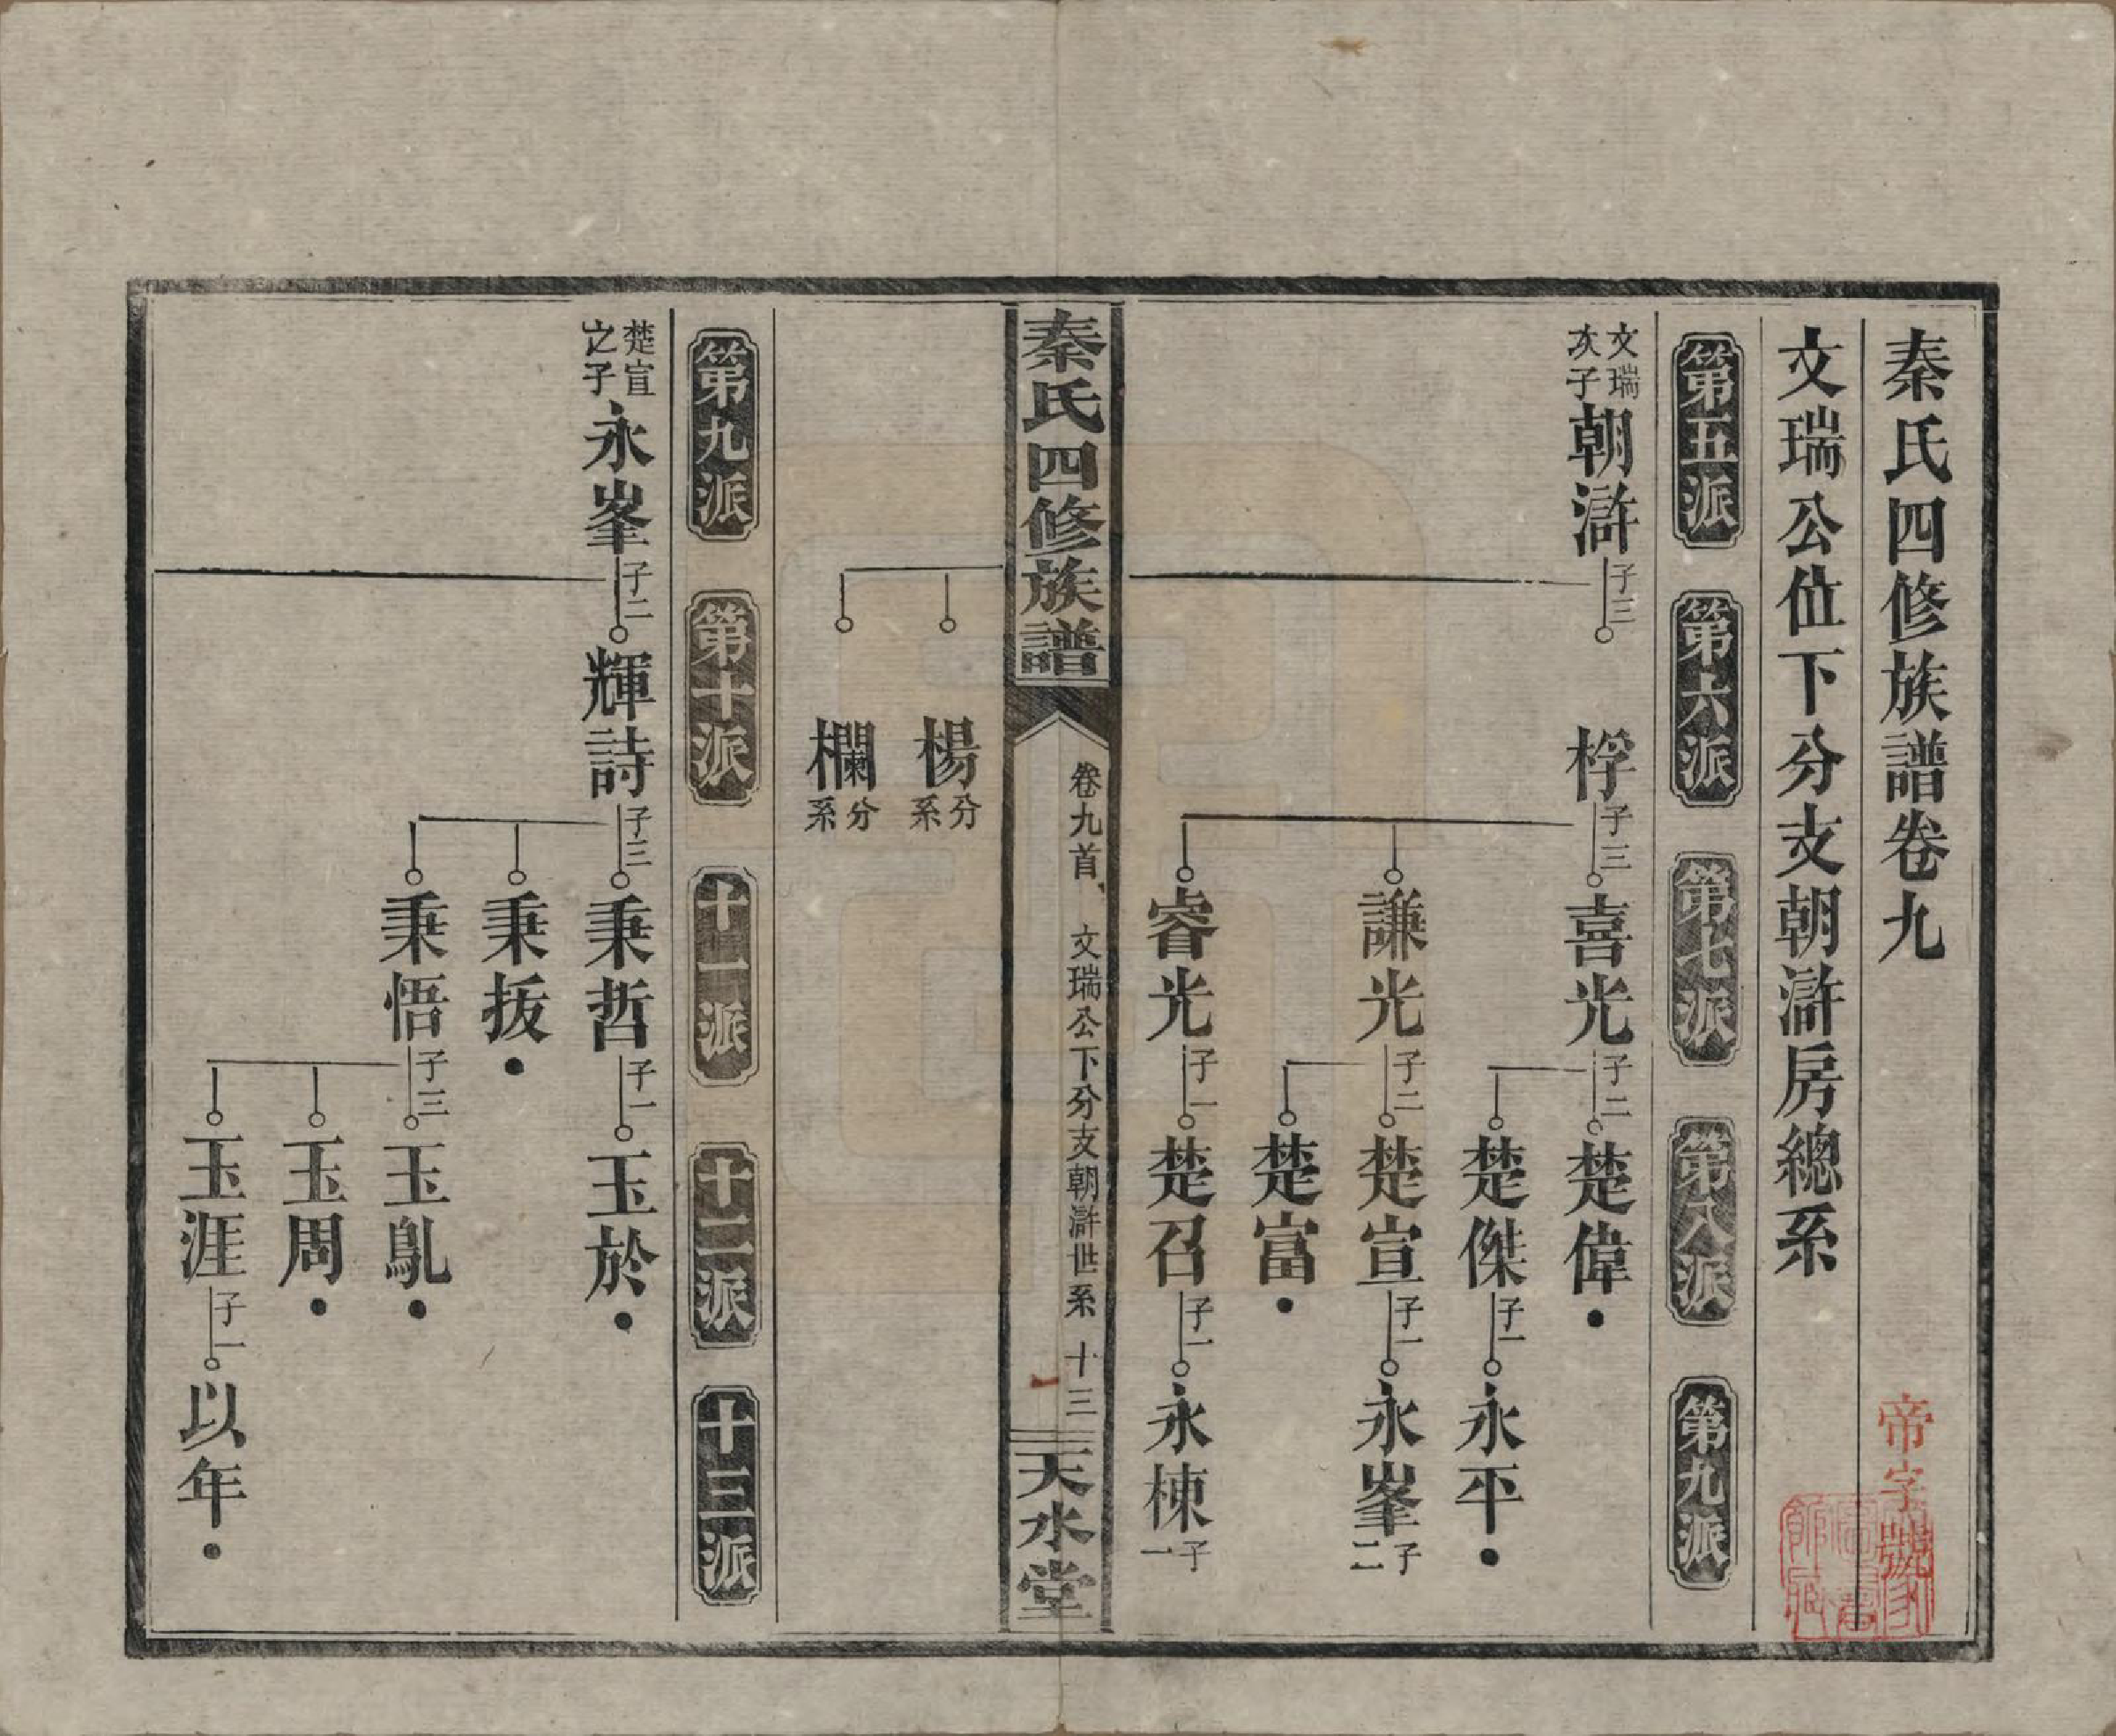 秦氏四修族譜卷九
帝字號
文瑞公位下分支朝滸房總系
第五派
第六派
第七派
第八派
第九派
文瑞
次子
朝滸
子三
桴
子三
喜光
子二
楚偉
楚傑
子一
永平
謙光
子二
楚宣
子一
永峯
子二
楚富
睿光
子一
楚召
子一
永棟
子一
秦氏四修族譜
卷九首
文瑞公下分支朝滸世系
十三
天水堂
楊
分系
欄
分系
第九派
第十派
十一派
十二派
十三派
楚宣
之子
永峯
子二
輝詩
子三
秉哲
子一
玉於
秉拔
秉悟
子三
玉鳦
玉周
玉涯
子一
以年